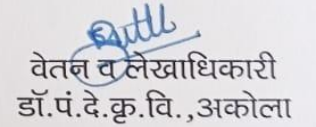 वेतन व लेखाधिकारी
डॉ.पं.दे.कृ.वि.,अकोला